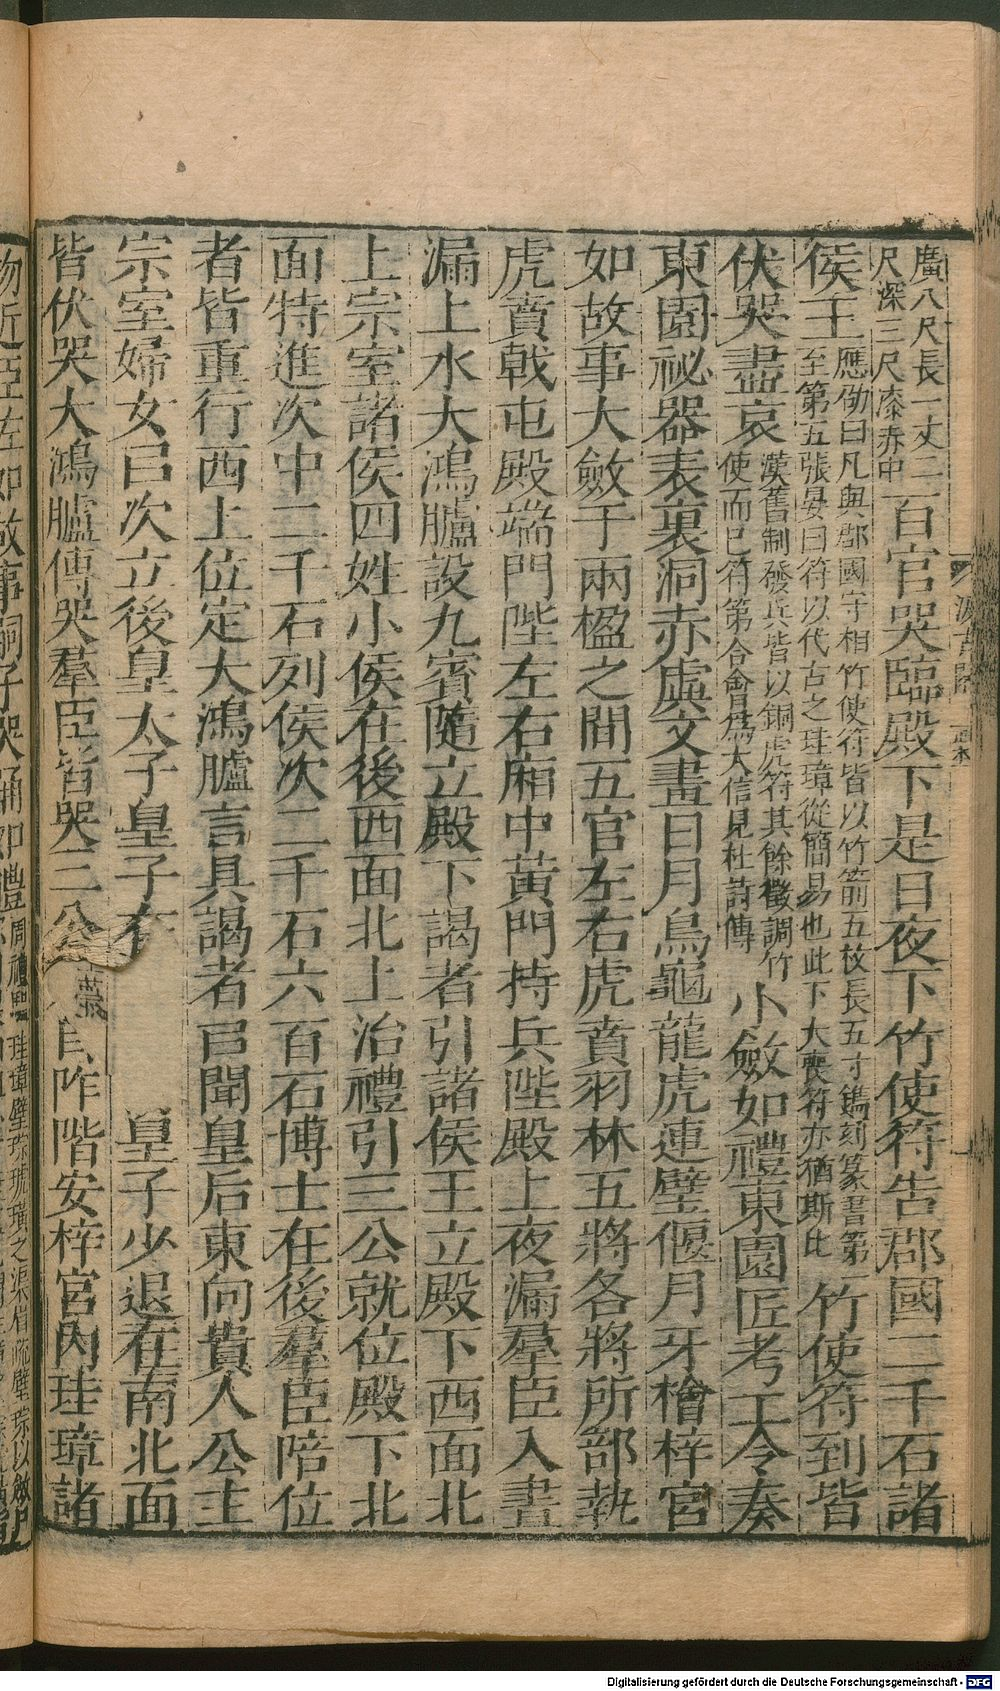 廣八尺長一丈二尺深三尺漆赤中百官哭臨殿下是日夜下竹使符告郡國二千石諸
侯王應劭曰凡與郡國守相竹使符皆以竹箭五枚長五寸鐫刻篆書第一至第五張晏曰符以代古之珪璋從簡易也此下大喪符亦猶斯比竹使符到皆
伏哭盡哀漢舊制發兵皆以銅虎符其餘徵調竹使而已符第合會爲大信見杜詩傳小斂如禮東園匠考工令奏
東園祕器表裏洞赤虡文畫日月鳥龜龍虎連璧偃月牙檜梓宮
如故事大斂于兩楹之間五官左右虎賁羽林五將各將所部執
虎賁戟屯殿端門陛左右廂中黃門持兵陛殿上夜漏羣臣入晝
漏上水大鴻臚設九賓隨立殿下謁者引諸侯王立殿下西面北
上宗室諸侯四姓小侯在後西面北上治禮引三公就位殿下北
面特進次中二千石列侯次二千石六百石博士在後羣臣陪位
者皆重行西上位定大鴻臚言具謁者㠯聞皇后東向貴人公主
宗室婦女㠯次立後皇太子皇子在皇子少退在南北面
皆伏哭大鴻臚傳哭羣臣皆哭三公自阼階安梓宮內珪璋諸
汲古閣
Digitalisierung gefördert durch die Deutsche Forschungsgemeinschaft - DFG